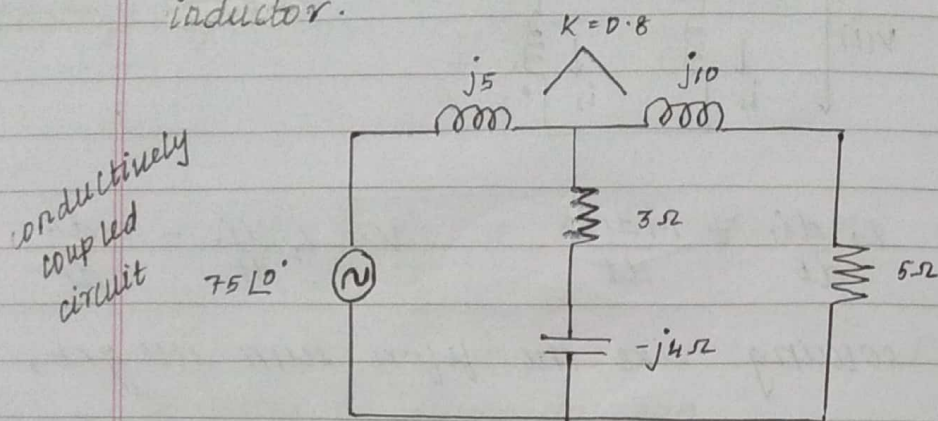 inductor.
K = 0.8
j5
j10
conductively
coupled
circuit
3Ω
75∠0°
5Ω
-j4Ω